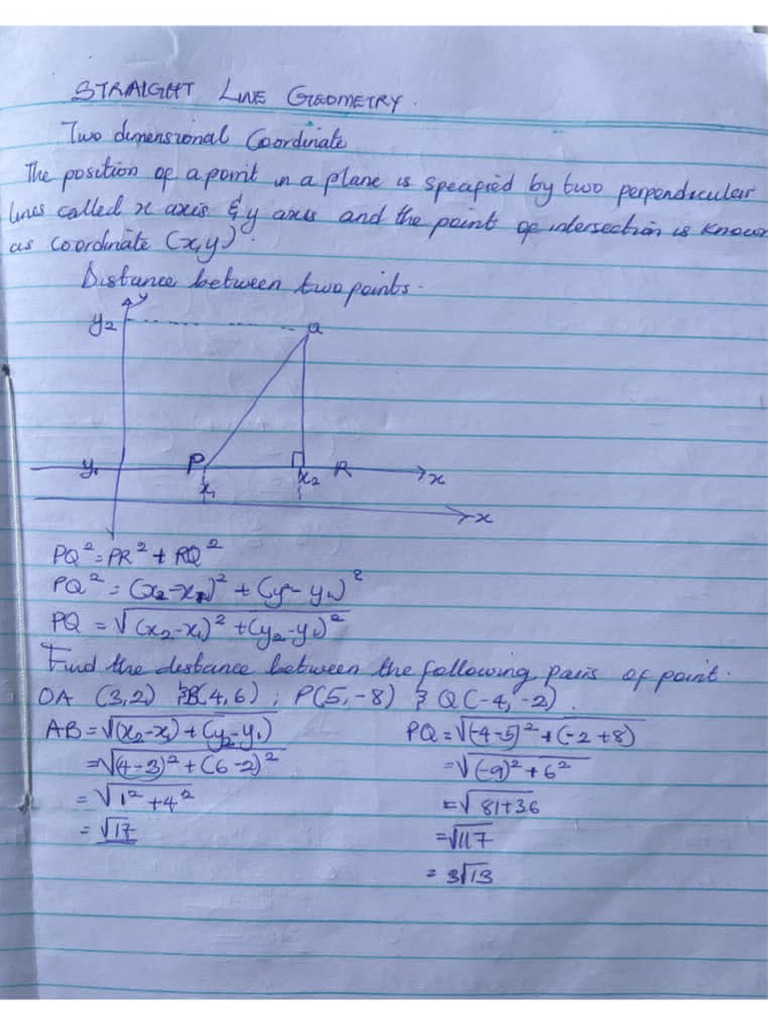 STRAIGHT LINE GEOMETRY.
Two dimensional Coordinate
The position of a point in a plane is specified by two perpendicular
lines called x axis & y axis and the point of intersection is known
as coordinate (x,y).
Distance between two points.
y
y₂ Q
y₁ P x₁ x₂ R x
x
PQ² = PR² + RQ²
PQ² = (x₂-x₁)² + (y²- y₁)²
PQ = √(x₂-x₁)² + (y₂-y₁)²
Find the distance between the following pairs of point.
OA (3,2) & B(4,6) ; P(5,-8) & Q(-4,-2).
AB = √(x₂-x₁)+(y₂-y₁) PQ = √(-4-5)² + (-2+8)
= √(4-3)² + (6-2)² = √(-9)² + 6²
= √1² + 4² = √81+36
= √17 = √117
= 3√13